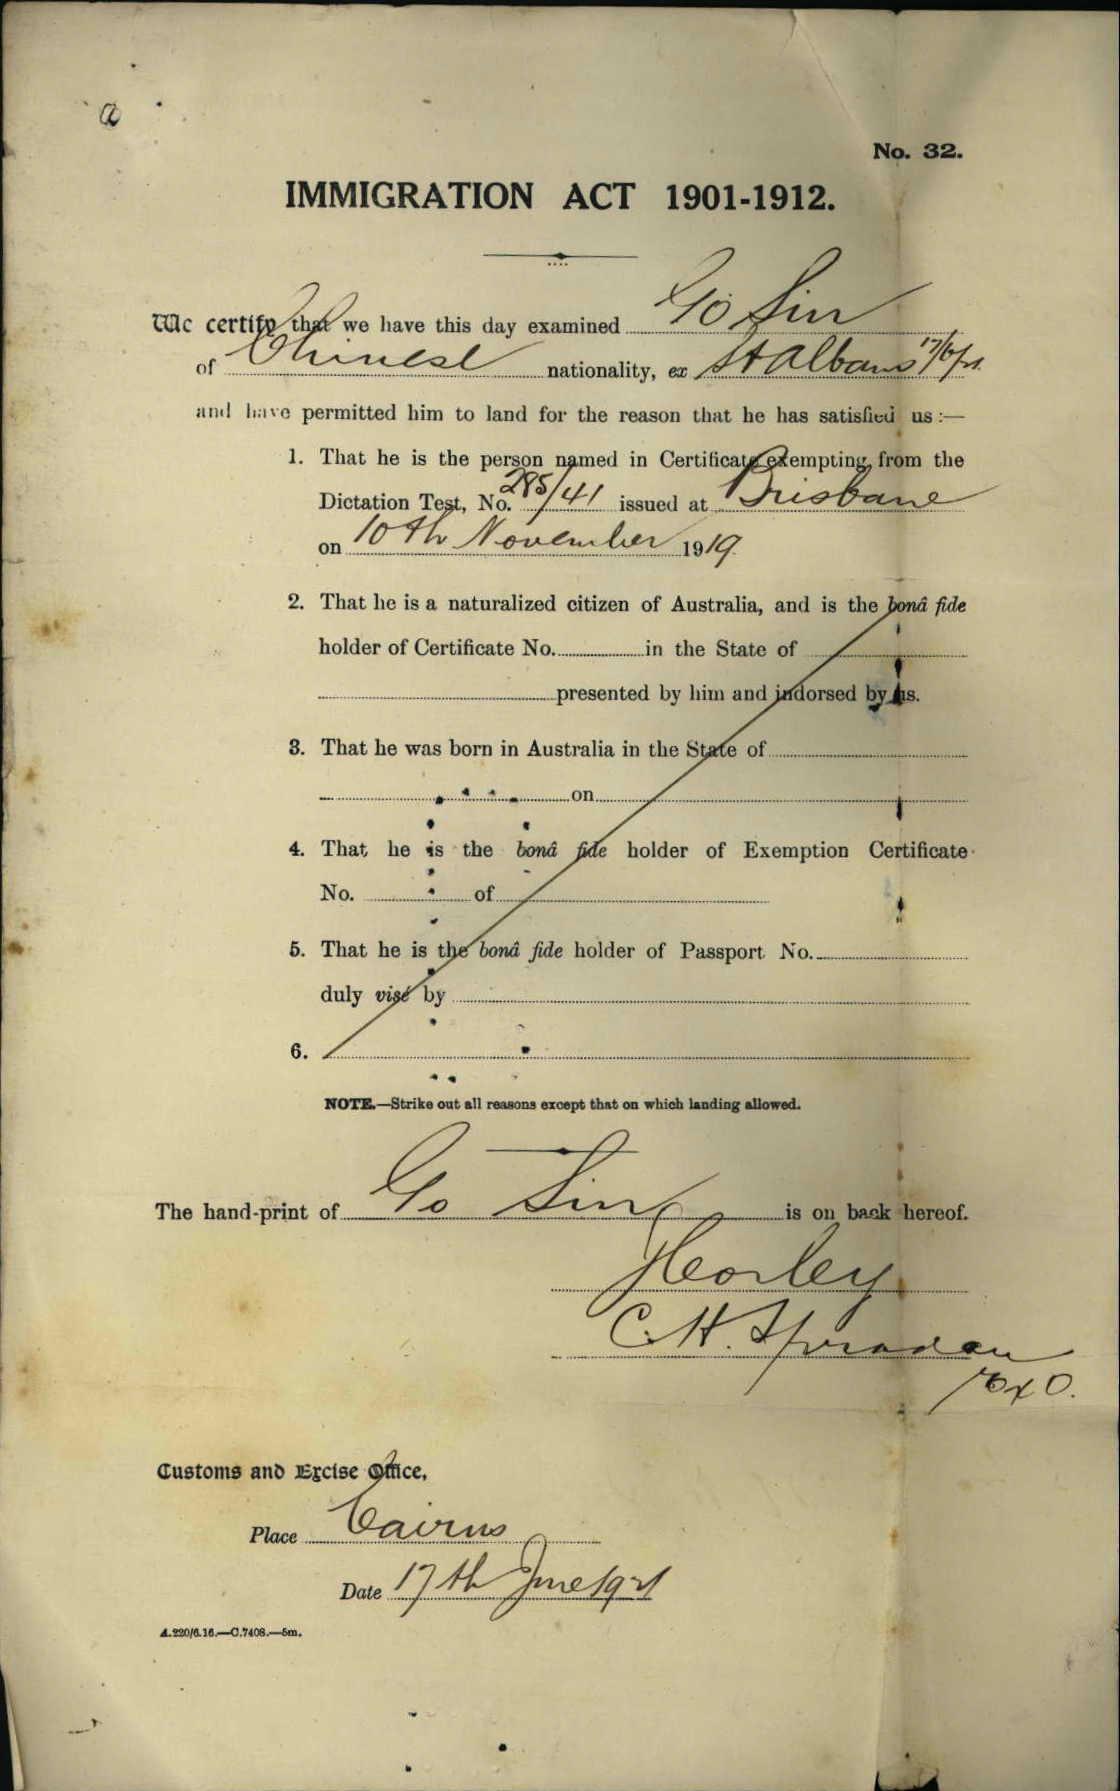 a
No. 32.
IMMIGRATION ACT 1901-1912.
We certify that we have this day examined Go Sin
of Chinese nationality, ex St Albans 17/6/21
and have permitted him to land for the reason that he has satisfied us :—
1. That he is the person named in Certificate exempting from the
Dictation Test, No. 285/41 issued at Brisbane
on 10th November 1919
2. That he is a naturalized citizen of Australia, and is the bonâ fide
holder of Certificate No. in the State of
presented by him and indorsed by us.
3. That he was born in Australia in the State of
on
4. That he is the bonâ fide holder of Exemption Certificate
No. of
5. That he is the bonâ fide holder of Passport No.
duly visé by
6.
NOTE.—Strike out all reasons except that on which landing allowed.
The hand-print of Go Sin is on back hereof.
C. H.
Customs and Excise Office,
Place Cairns
Date 17th June 1921
A.220/6.16.—C.7408.—5m.